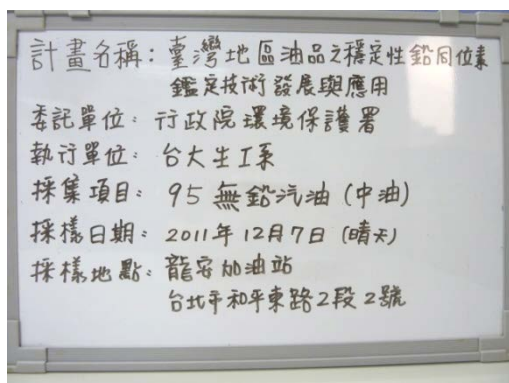 計畫名稱：臺灣地區油品之穩定性鉛同位素
鑑定技術發展與應用
委託單位：行政院環境保護署
執行單位：台大生工系
採集項目：95無鉛汽油(中油)
採樣日期：2011年12月7日(晴天)
採樣地點：龍安加油站
台北市和平東路2段2號